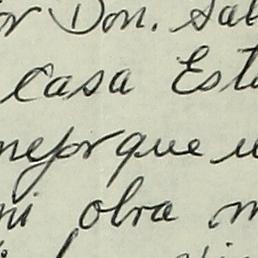 or Don. Sal
Casa Est
mejor que u
mi obra m